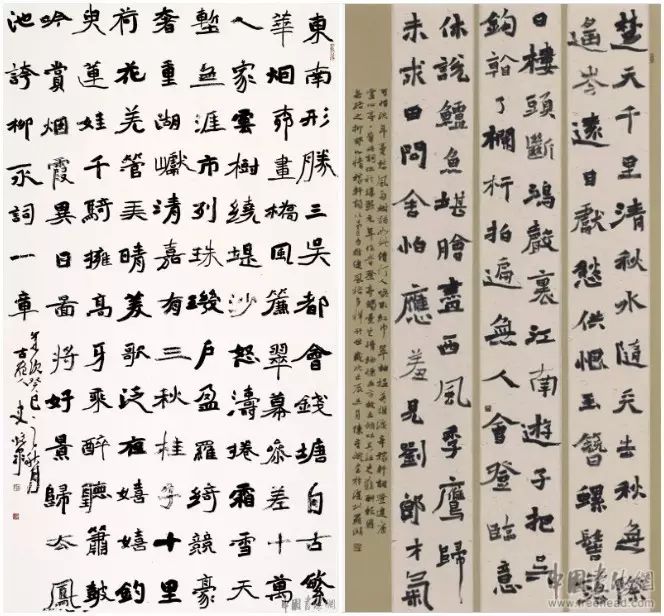 東南形勝三吳都會錢塘自古繁
華烟柳畫橋風簾翠幕參差十萬
人家雲樹繞堤沙怒濤捲霜雪天
塹無涯市列珠璣戶盈羅綺競豪
奢重湖巘清嘉有三秋桂子十里
荷花羌管弄晴菱歌泛夜嬉嬉釣
叟蓮娃千騎擁高牙乘醉聽簫鼓
吟賞烟霞異日圖將好景歸去鳳
池誇柳永詞一章
癸巳
楚天千里清秋水隨天去秋無際
遥岑遠目獻愁供恨玉簪螺髻落
日樓頭斷鴻聲裏江南遊子把吳
鈎看了欄杆拍遍無人會登臨意
休說鱸魚堪膾盡西風季鷹歸
未求田問舍怕應羞見劉郎才氣
可惜流年憂愁風雨樹猶如此倩何人喚取紅巾翠袖揾英雄淚
中國書法網
www.freehead.com